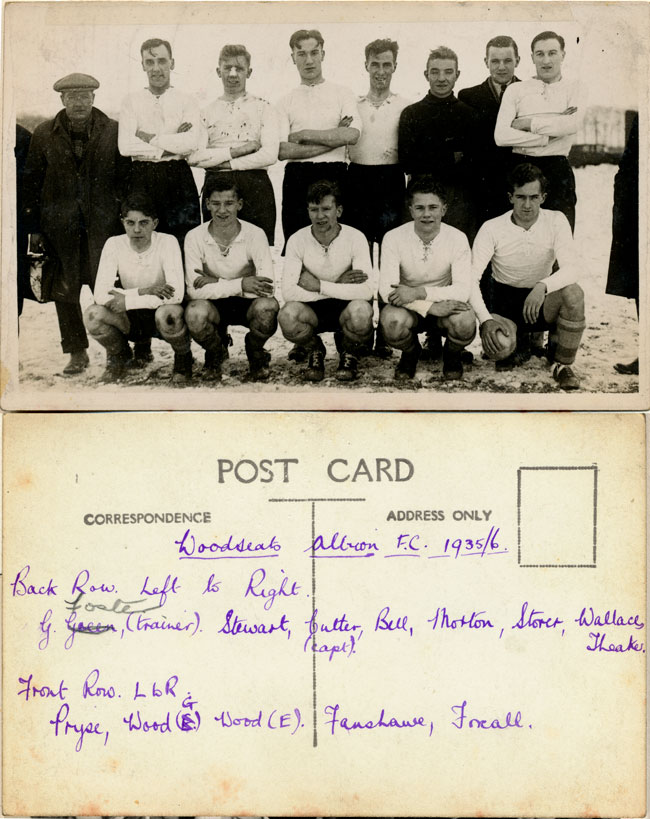 POST CARD
CORRESPONDENCE
ADDRESS ONLY
Woodseats Albion F.C. 1935/6.
Back Row. Left to Right.
Foster
G. Green, (trainer). Stewart, Cutter, Bell, Morton, Storer, Wallace,
(capt). Theaker.
Front Row. L to R.
G
Pryse, Wood ( ) Wood (E). Fanshawe, Foxall.